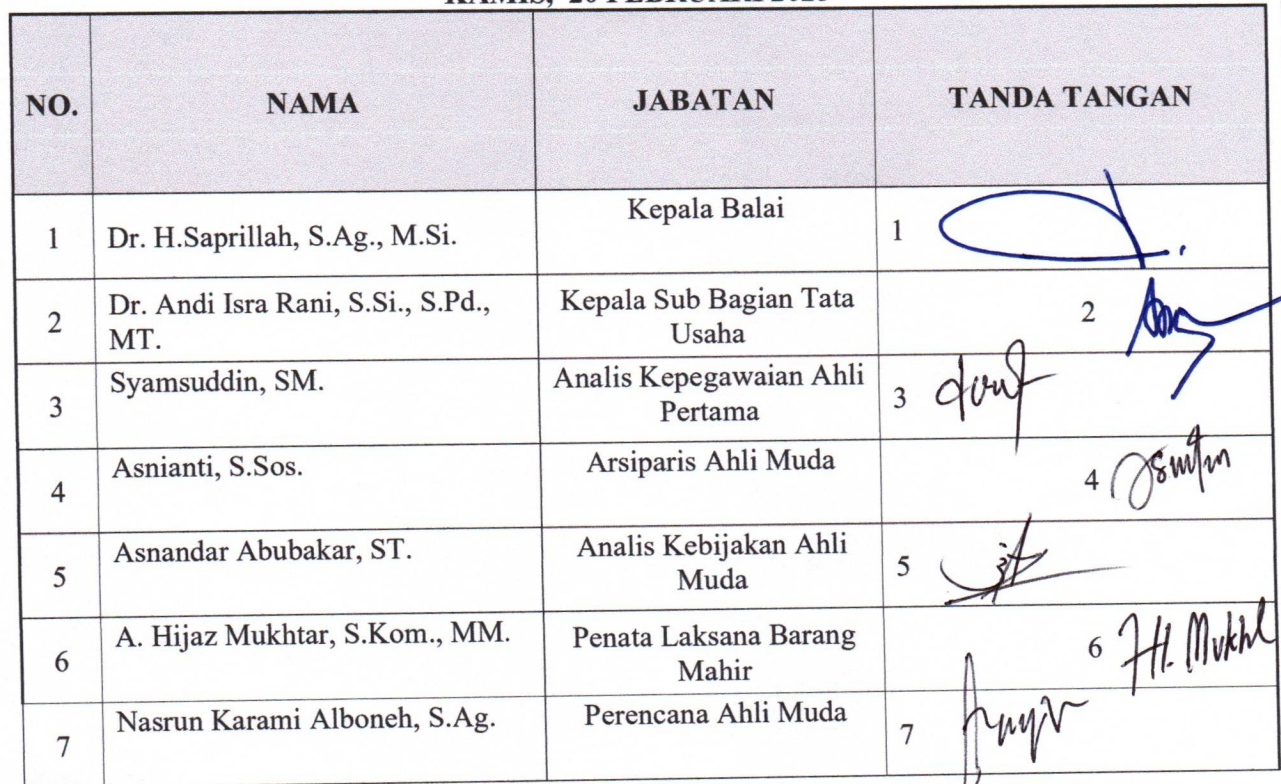 KAMIS, 20 FEBRUARI 2025
NO. NAMA JABATAN TANDA TANGAN
1 Dr. H.Saprillah, S.Ag., M.Si. Kepala Balai 1
2 Dr. Andi Isra Rani, S.Si., S.Pd., Kepala Sub Bagian Tata 2
MT. Usaha
3 Syamsuddin, SM. Analis Kepegawaian Ahli 3
Pertama
4 Asnianti, S.Sos. Arsiparis Ahli Muda 4
5 Asnandar Abubakar, ST. Analis Kebijakan Ahli 5
Muda
6 A. Hijaz Mukhtar, S.Kom., MM. Penata Laksana Barang 6
Mahir
7 Nasrun Karami Alboneh, S.Ag. Perencana Ahli Muda 7